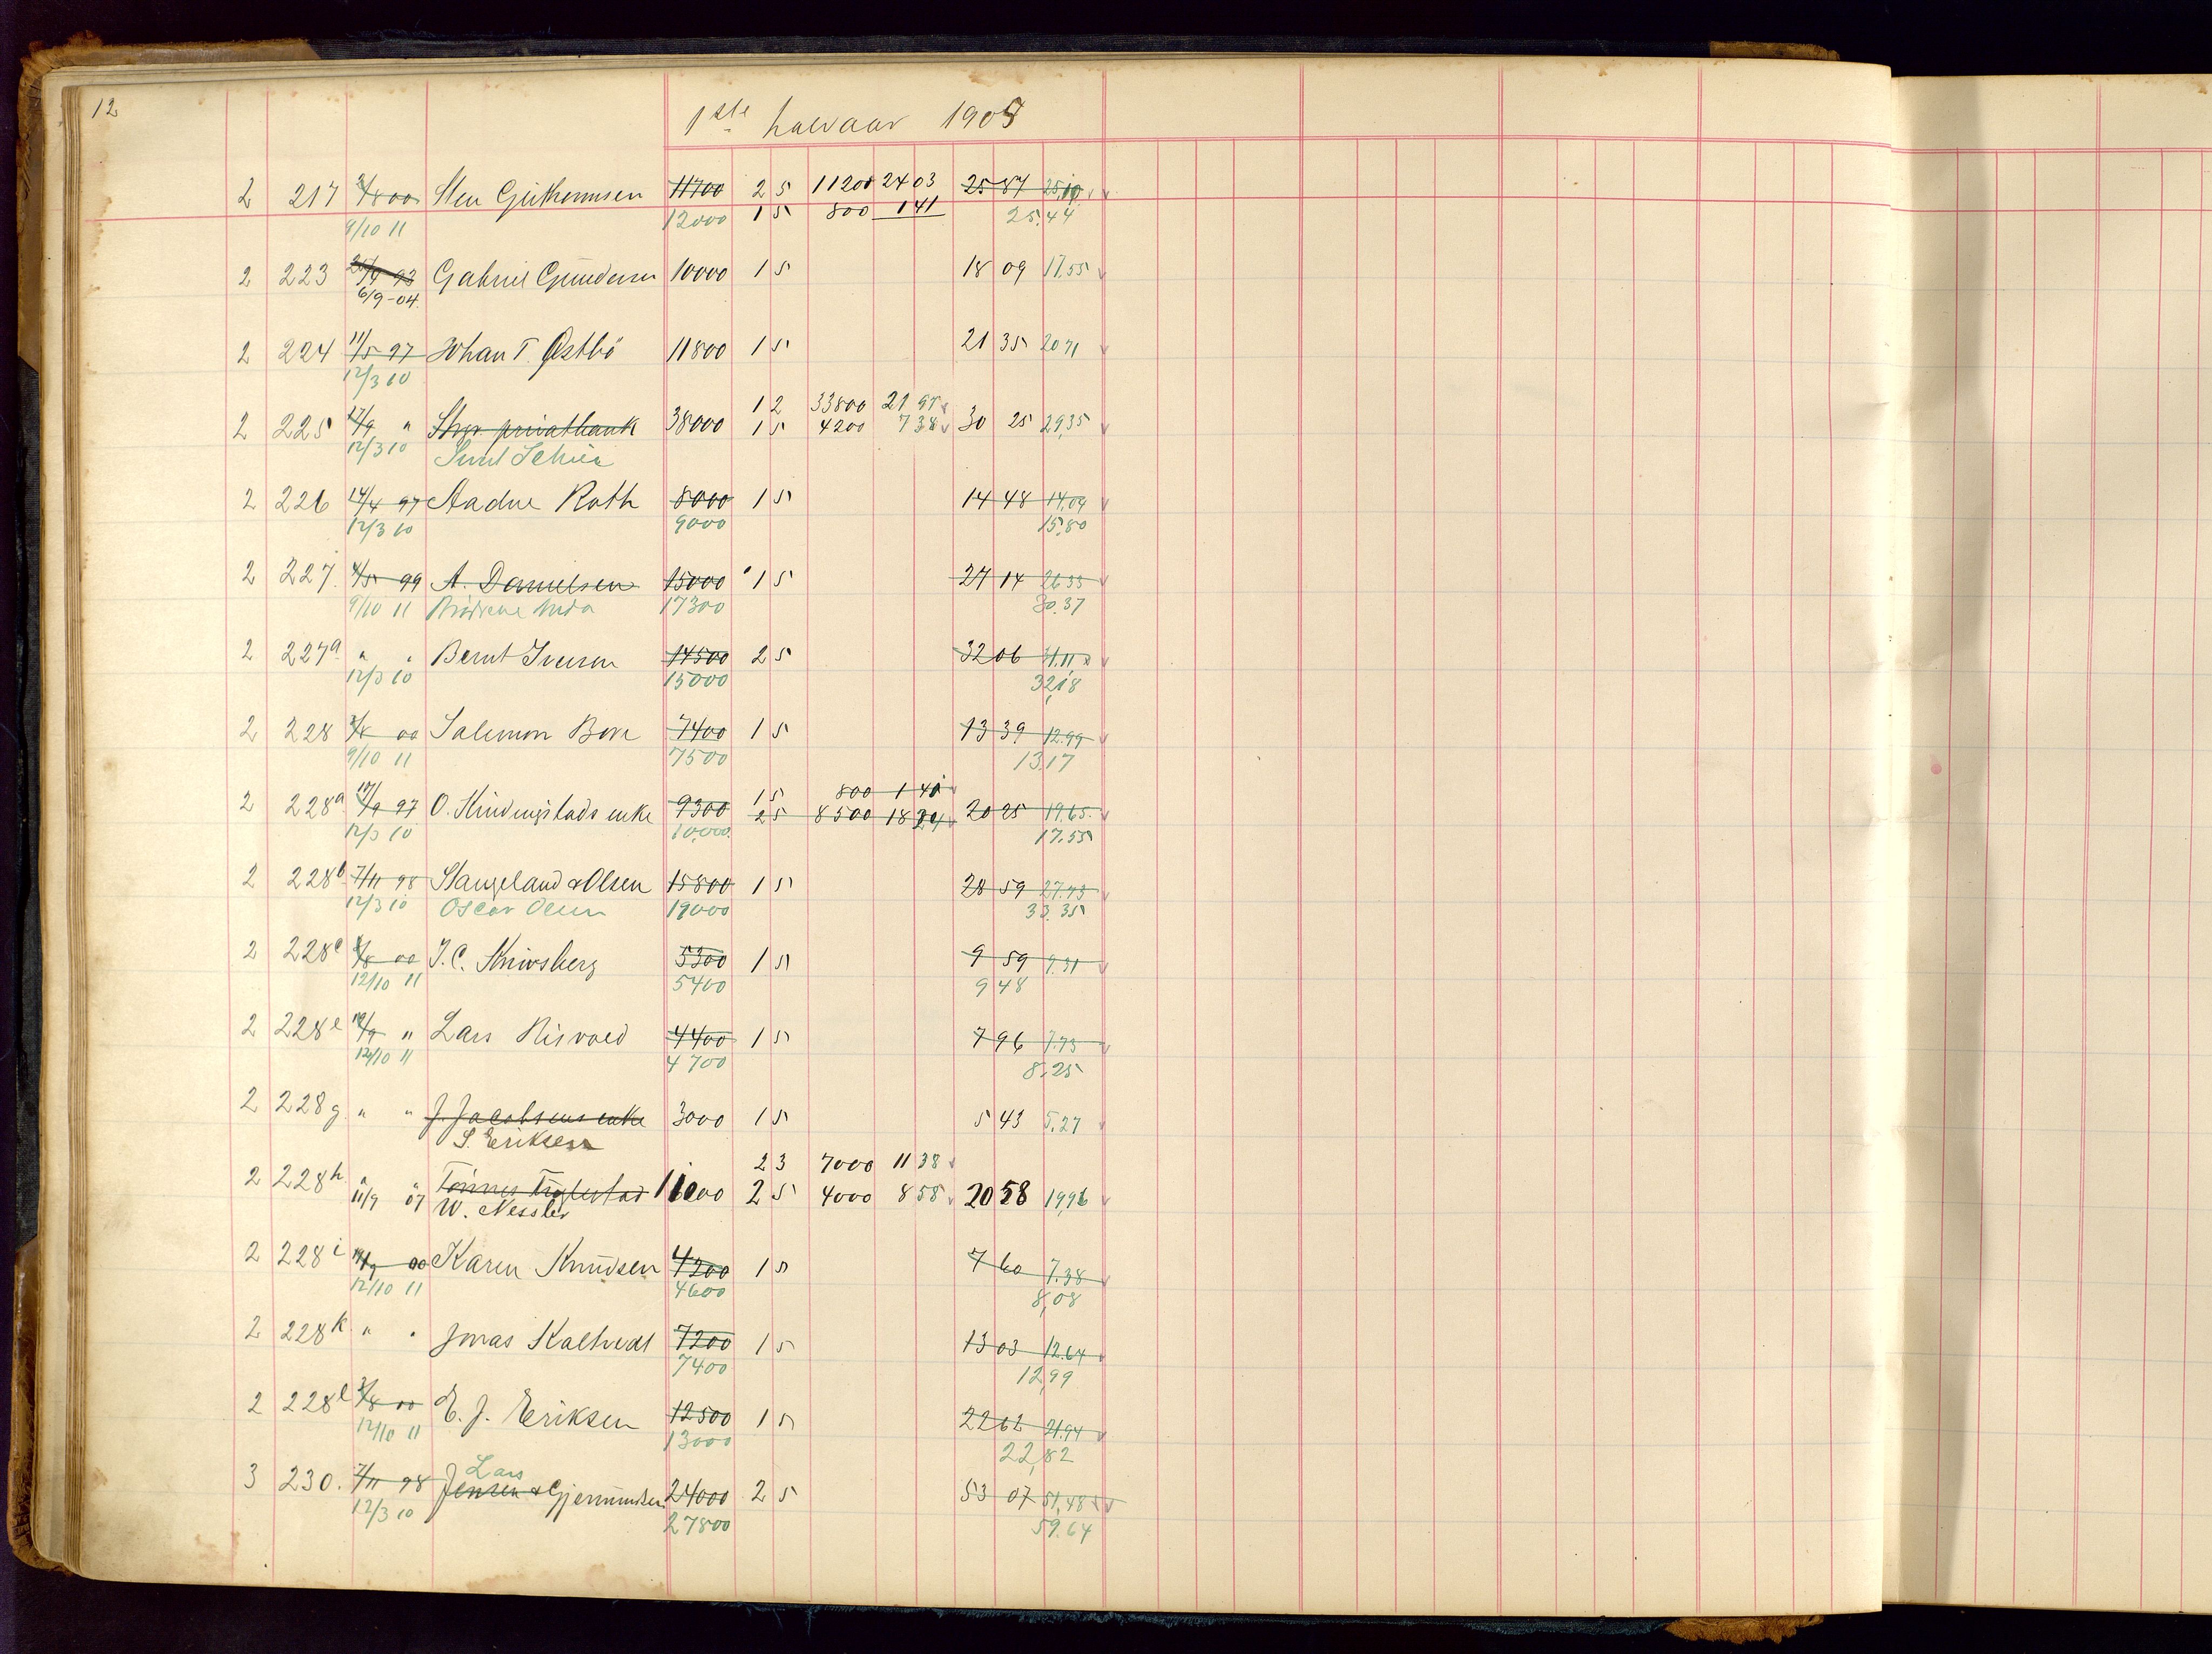 12
1ste halvaar 1905
2 217 2/8 00 Sten Guthormsen 11700 2 5 11200 24 03 25 87 25,10
9/10 11 12000 1 5 800 1 41 25,44
2 223 93 Gabriel Gundersen 10000 1 5 18 09 17,55
6/9-04.
2 224 11/5 97 Johan T. Østbö 11800 1 5 21 35 20 71
12/3 10
1 2 33800 21 97
2 225 17/9 " Stvgr. privatbank 38000 1 5 4200 7 38 30 25 29,35
12/3 10
2 226 14/4 97 Aadne Roth 8000 1 5 14 48 14,04
12/3 10 9000 15,80
2 227. 4/5 99 A. Danielsen 15000 1 5 27 14 26 33
9/10 11 17300 30,37
2 227a " " Bernt Iversen 14500 2 5 32 06 31,11
12/3 10 15000 32,18
2 228 2/8 00 Salemon Bore 7400 1 5 13 39 12,99
9/10 11 7500 13,17
1 5 800 1 41
2 228a 17/9 97 O. Kindingstads enke 9300 2 5 8500 18 24 20 25 19,65
12/3 10 10,000. 17,55
2 228b 7/11 98 Stangeland & Olsen 15800 1 5 28 59 27,73
12/3 10 Oscar Olsen 19000 33,35
2 228c 2/8 00 J. C. Knivsberg 5300 1 5 9 59 9,31
12/10 11 5400 9 48
2 228e 19/9 " Lars Risvold 4400 1 5 7 96 7,73
12/10 11 4700 8,25
2 228g. " " J. Jacobsens enke 3000 1 5 5 43 5,27
S. Eriksen
2 3 7000 11 38
2 228h " " Tönnes 11000 2 5 4000 8 58 20 58 19,96
11/9 07 W. Nessler
2 228i 19/9 00 Karen Knudsen 4200 1 5 7 60 7,38
12/10 11 4600 8,08
2 228k " " Jonas Kalhvedt 7200 1 5 13 03 12,64
7400 12,99
2 228l 2/8 00 E. J. Eriksen 12500 1 5 22 62 21,94
12/10 11 13000 22,82
Lars
3 230. 7/11 98 Jensen & Gjermundsen 24000 2 5 53 07 51,48
12/3 10 27800 59,64